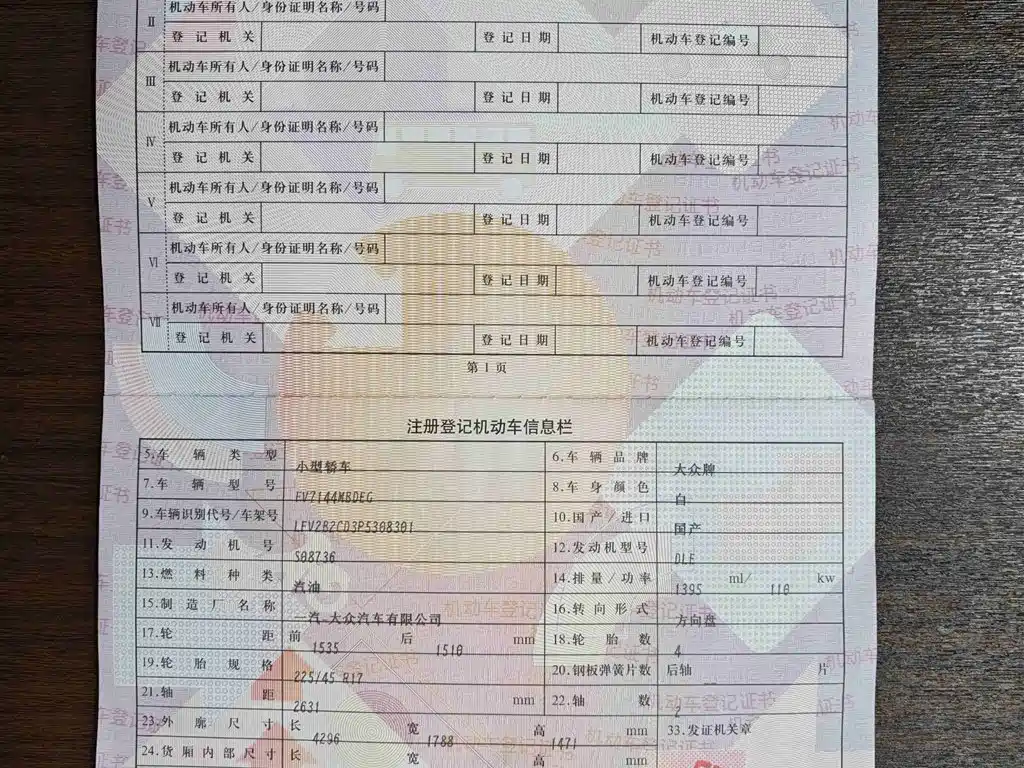 II 机动车所有人/身份证明名称/号码
登记机关 登记日期 机动车登记编号
III 机动车所有人/身份证明名称/号码
登记机关 登记日期 机动车登记编号
IV 机动车所有人/身份证明名称/号码
登记机关 登记日期 机动车登记编号
V 机动车所有人/身份证明名称/号码
登记机关 登记日期 机动车登记编号
VI 机动车所有人/身份证明名称/号码
登记机关 登记日期 机动车登记编号
VII 机动车所有人/身份证明名称/号码
登记机关 登记日期 机动车登记编号
第1页
注册登记机动车信息栏
5.车辆类型 小型轿车 6.车辆品牌 大众牌
7.车辆型号 FV7144MBDEG 8.车身颜色 白
9.车辆识别代号/车架号 LFV2B2CD3P5308301 10.国产/进口 国产
11.发动机号 S08736 12.发动机型号 DLE
13.燃料种类 汽油 14.排量/功率 1395 ml/ 110 kw
15.制造厂名称 一汽-大众汽车有限公司 16.转向形式 方向盘
17.轮距 前 1535 后 1510 mm 18.轮胎数 4
19.轮胎规格 225/45 R17 20.钢板弹簧片数 后轴 片
21.轴距 2631 mm 22.轴数 2
23.外廓尺寸 长 4296 宽 1788 高 1471 mm 33.发证机关章
24.货厢内部尺寸 长 宽 高 mm